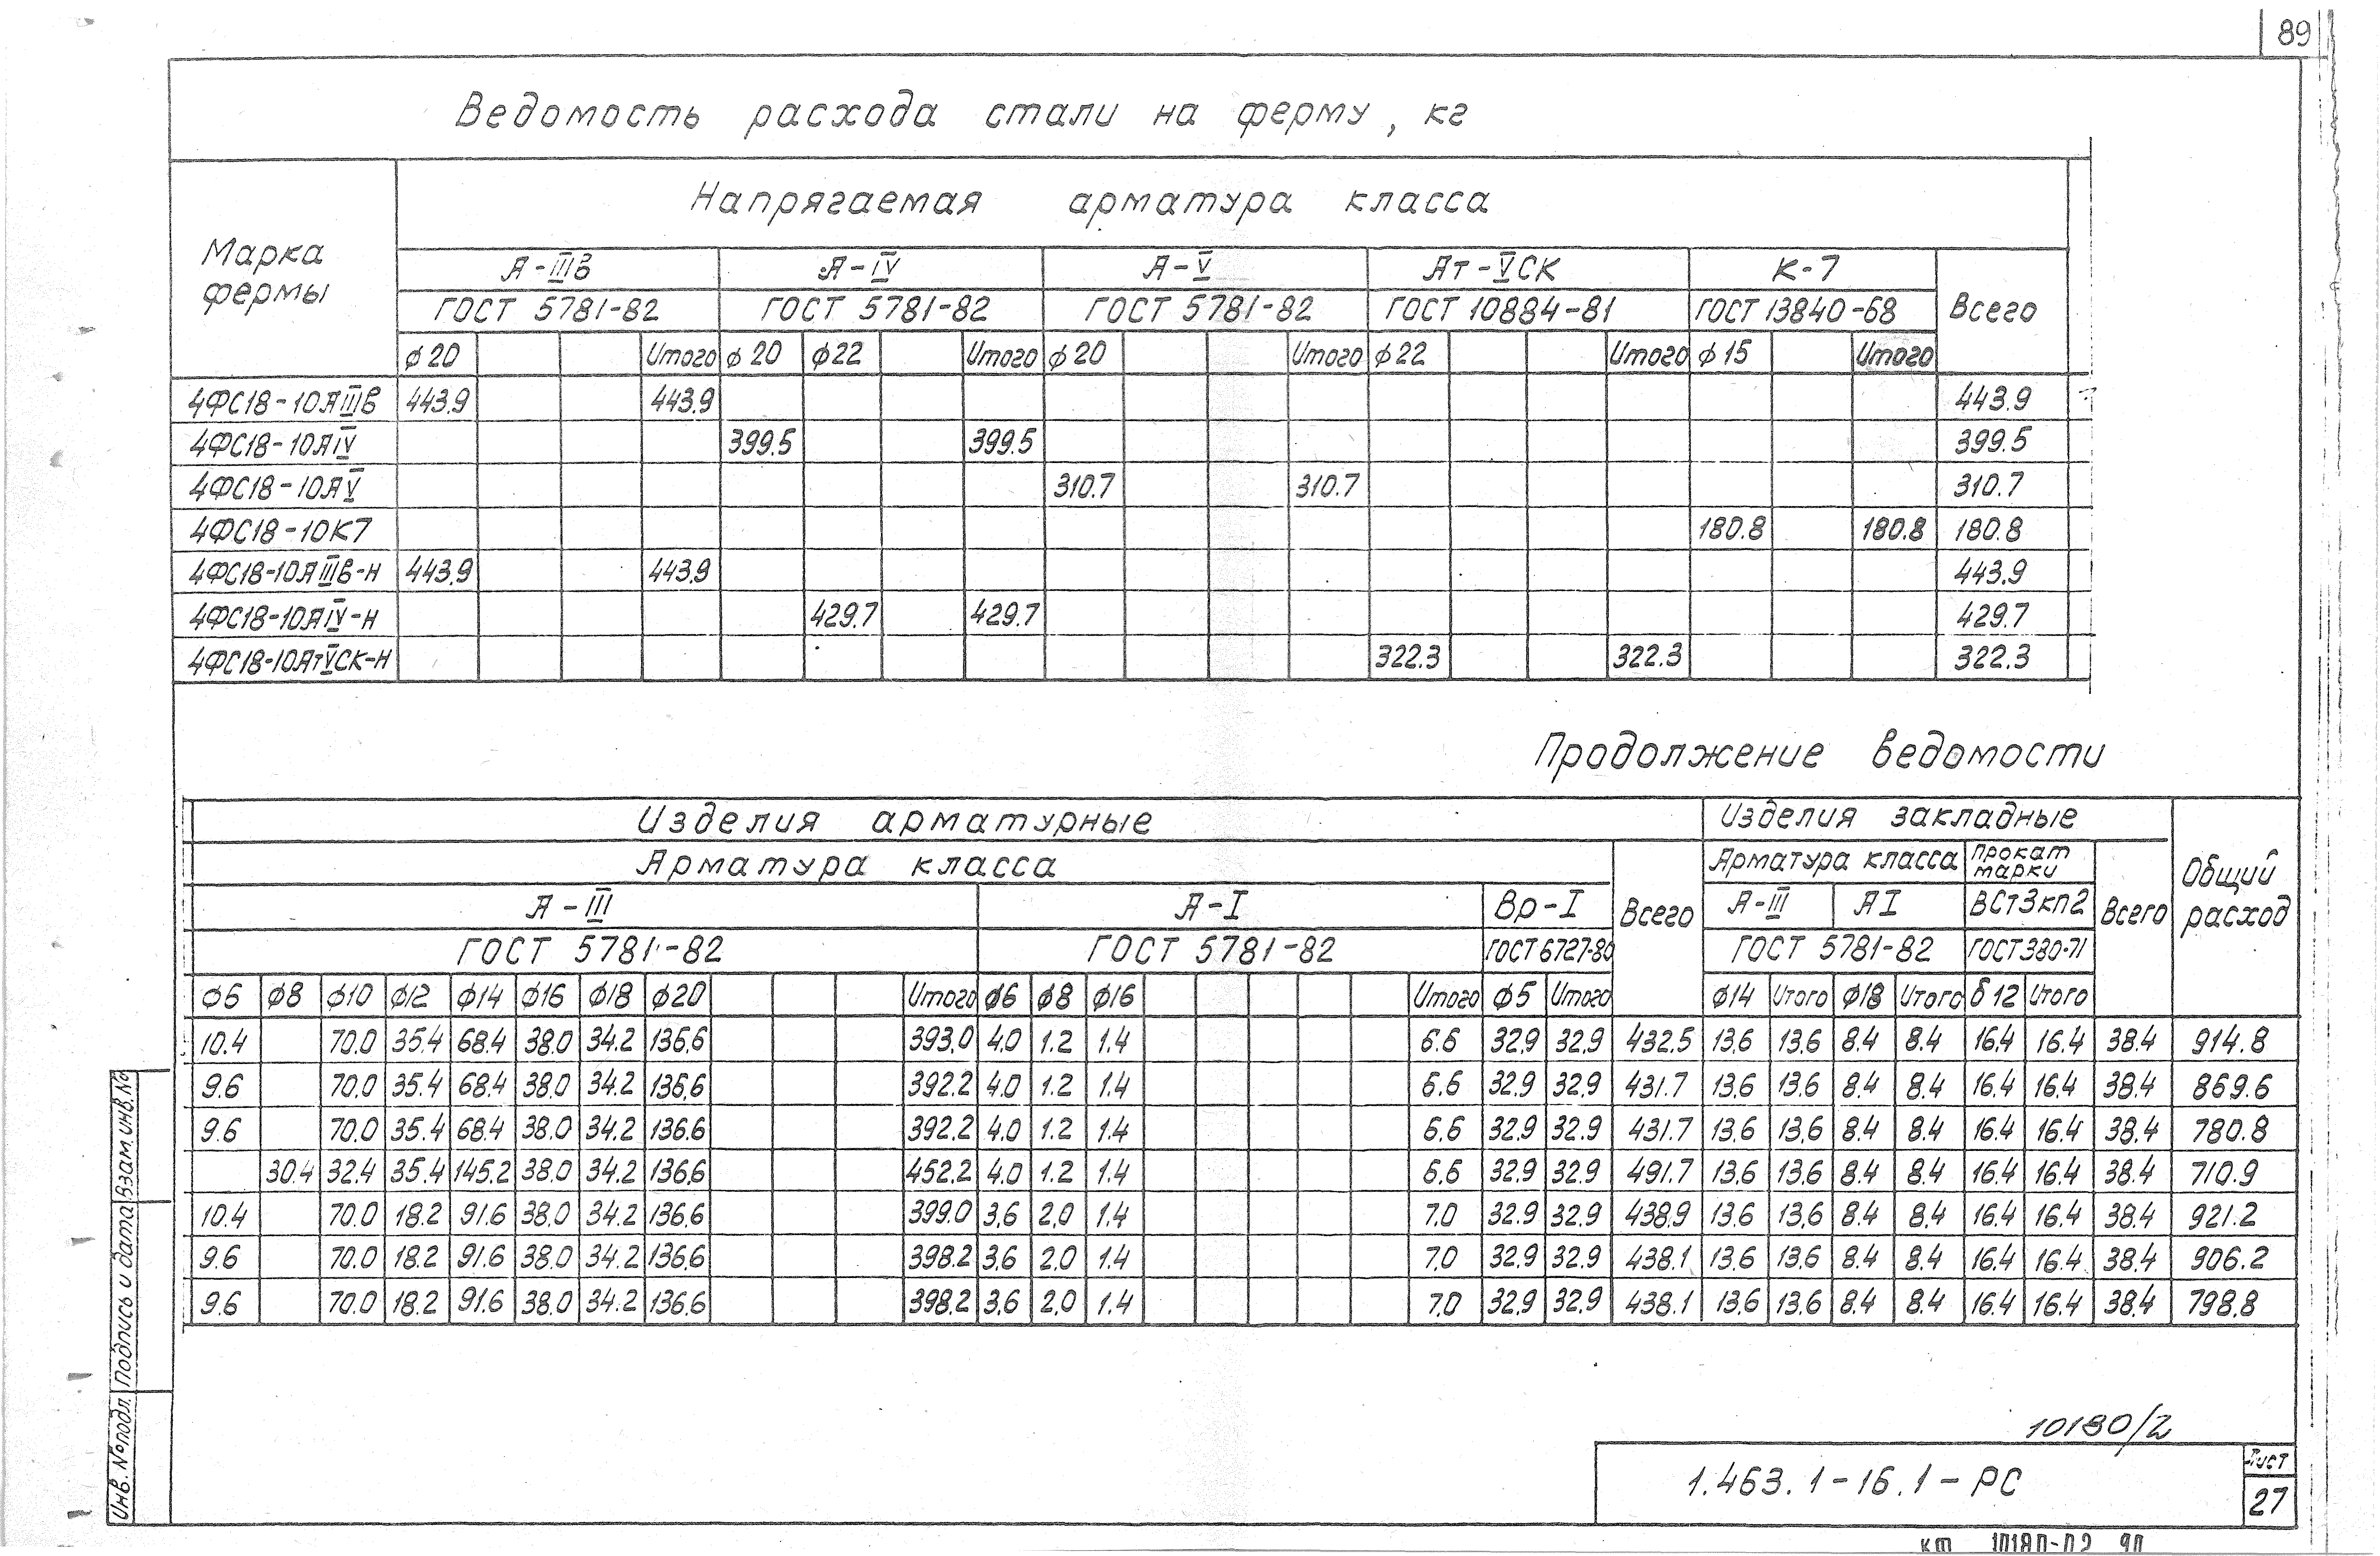 89
Ведомость расхода стали на ферму, кг
Марка фермы
Напрягаемая арматура класса
А-IIIв А-IV А-V Ат-VСК К-7 Всего
ГОСТ 5781-82 ГОСТ 5781-82 ГОСТ 5781-82 ГОСТ 10884-81 ГОСТ 13840-68
ф20 Итого ф20 ф22 Итого ф20 Итого ф22 Итого ф15 Итого
4ФС18-10АIIIв 443.9 443.9 443.9
4ФС18-10АIV 399.5 399.5 399.5
4ФС18-10АV 310.7 310.7 310.7
4ФС18-10К7 180.8 180.8 180.8
4ФС18-10АIIIв-Н 443.9 443.9 443.9
4ФС18-10АIV-Н 429.7 429.7 429.7
4ФС18-10АтVСК-Н 322.3 322.3 322.3
Продолжение ведомости
Изделия арматурные Изделия закладные Общий расход
Арматура класса Всего Арматура класса Прокат марки Всего
А-III А-I Вр-I А-III АI ВСт3кп2
ГОСТ 5781-82 ГОСТ 5781-82 ГОСТ 6727-80 ГОСТ 5781-82 ГОСТ 380-71
ф6 ф8 ф10 ф12 ф14 ф16 ф18 ф20 Итого ф6 ф8 ф16 Итого ф5 Итого ф14 Итого ф18 Итого δ12 Итого
10.4 70.0 35.4 68.4 38.0 34.2 136.6 393.0 4.0 1.2 1.4 6.6 32.9 32.9 432.5 13.6 13.6 8.4 8.4 16.4 16.4 38.4 914.8
9.6 70.0 35.4 68.4 38.0 34.2 136.6 392.2 4.0 1.2 1.4 6.6 32.9 32.9 431.7 13.6 13.6 8.4 8.4 16.4 16.4 38.4 869.6
9.6 70.0 35.4 68.4 38.0 34.2 136.6 392.2 4.0 1.2 1.4 6.6 32.9 32.9 431.7 13.6 13.6 8.4 8.4 16.4 16.4 38.4 780.8
30.4 32.4 35.4 145.2 38.0 34.2 136.6 452.2 4.0 1.2 1.4 6.6 32.9 32.9 491.7 13.6 13.6 8.4 8.4 16.4 16.4 38.4 710.9
10.4 70.0 18.2 91.6 38.0 34.2 136.6 399.0 3.6 2.0 1.4 7.0 32.9 32.9 438.9 13.6 13.6 8.4 8.4 16.4 16.4 38.4 921.2
9.6 70.0 18.2 91.6 38.0 34.2 136.6 398.2 3.6 2.0 1.4 7.0 32.9 32.9 438.1 13.6 13.6 8.4 8.4 16.4 16.4 38.4 906.2
9.6 70.0 18.2 91.6 38.0 34.2 136.6 398.2 3.6 2.0 1.4 7.0 32.9 32.9 438.1 13.6 13.6 8.4 8.4 16.4 16.4 38.4 798.8
Инв. № подл. Подпись и дата Взам. инв. №
10180/2
1.463.1-16.1-РС
Лист
27